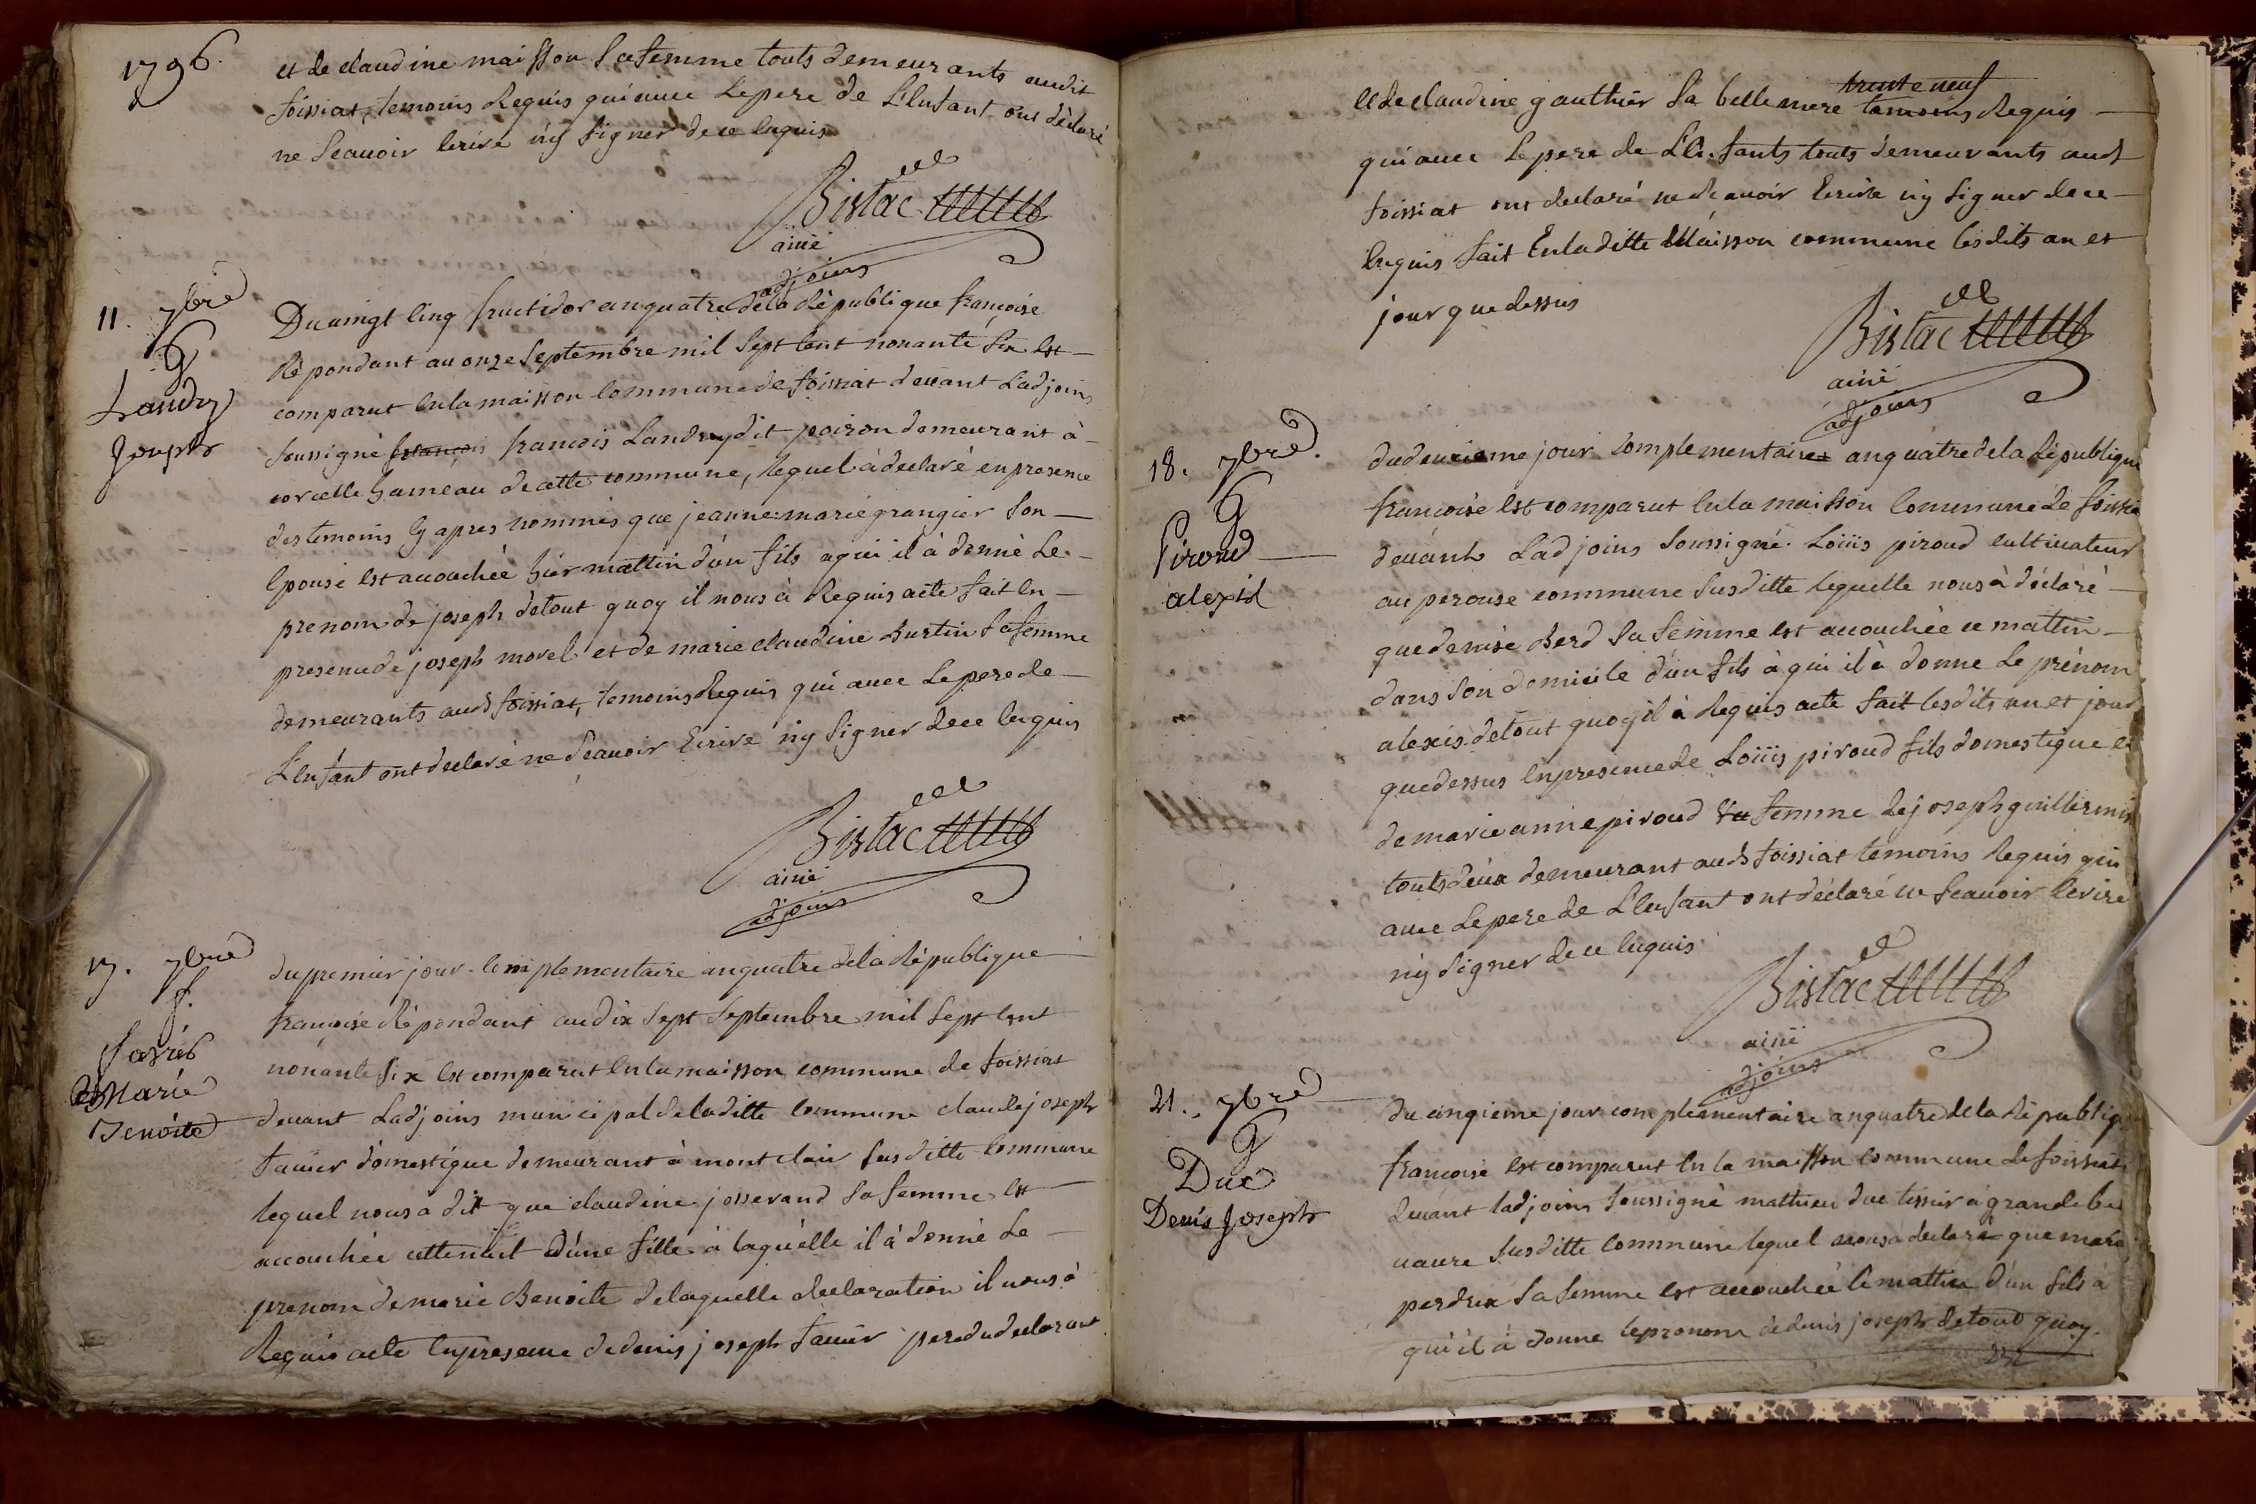 1796.
et de claudine maisson Sa femme touts demeurants audit
foissiat, temoins Requis qui avec Le pere de L'Enfant ont déclaré
ne Scavoir Ecrire n'y Signer de ce Enquis
Bistac
ainé
adjoins
11. 7bre
G
Landry
Joseph
Du vingt cinq fructidor an quatre de la République francoise
Répondant au onze Septembre mil Sept Cent nonante Six Est
comparut En la maisson Commune de foissiat devant Ladjoins
Soussigné francois francois Landry dit poiron demeurant à
corcelle hameau de cette commune, lequel à declaré en presence
des temoins Cy apres nommés que jeanne: marie grangier Son
Epouse est accouchée hier mattin d'un fils a qui il à donné Le
prenom de joseph de tout quoy il nous à Requis acte fait En
presence de joseph morel et de marie claudine Burtin Sa femme
demeurants aud foissiat, temoins Requis qui avec Le pere de
L'Enfant ont declaré ne Scavoir Ecrire n'y Signer de ce Enquis
Bistac
ainé
adjoins
17. 7bre
f.
Favier
Marie
Benoite
du premier jour Complementaire an quatre de la République
francoise Répondant au dix Sept Septembre mil Sept Cent
nonante Six Est comparut En la maisson commune de foissiat
devant Ladjoins municipal de laditte Commune claude joseph
favier domestique demeurant à montclair Susditte Commune
lequel nous a dit que claudine josserand Sa femme Est
accouchée cette nuit d'une fille à laquelle il à donné Le
prenom de marie Benoite de laquelle declaration il nous à
Requis acte En presence de denis joseph favier pere du declarant
et de claudine gauthier Sa belle mere temoins Requis
trente neuf
qui avec Le pere de L'Enfants touts demeurants aud
foissiat ont declaré ne Scavoir Ecrire n'y Signer de ce
Enquis fait En laditte Maisson commune Cesdits an et
jour que dessus
Bistac
ainé
adjoins
18. 7bre.
G
Piroud
alexis
du deuxieme jour Complementaire an quatre de la République
francoise Est comparut En la maisson Commune de foissia
devant Ladjoins Soussigné Loüis piroud cultivateur
au perouse commune Susditte lequelle nous à déclaré
que denise Berd Sa femme est accouchée ce mattin
dans Son domicile d'un fils à qui il à donne Le prénom
alexis de tout quoy il à Requis acte fait Cesdits an et jour
que dessus En presence de Loüis piroud fils domestique et
de marie anne piroud femme de joseph guillermin
touts deux demeurant aud foissiat temoins Requis qui
avec Le pere de L'Enfant ont déclaré ne Scavoir Ecrire
n'y Signer de ce Enquis
Bistac
ainé
adjoins
21. 7bre
G
Duc
Denis Joseph
du cinqieme jour complementaire an quatre de la Républiq
francoise Est comparut En la maisson commune de foissiat
devant Ladjoins Soussigné mathieu duc tissier a grande be
vavre Susditte Commune lequel nous à declaré que marie
perdrix Sa femme est accouchée Ce mattin d'un fils à
qui il à donne le prenom de denis joseph de tout quoy